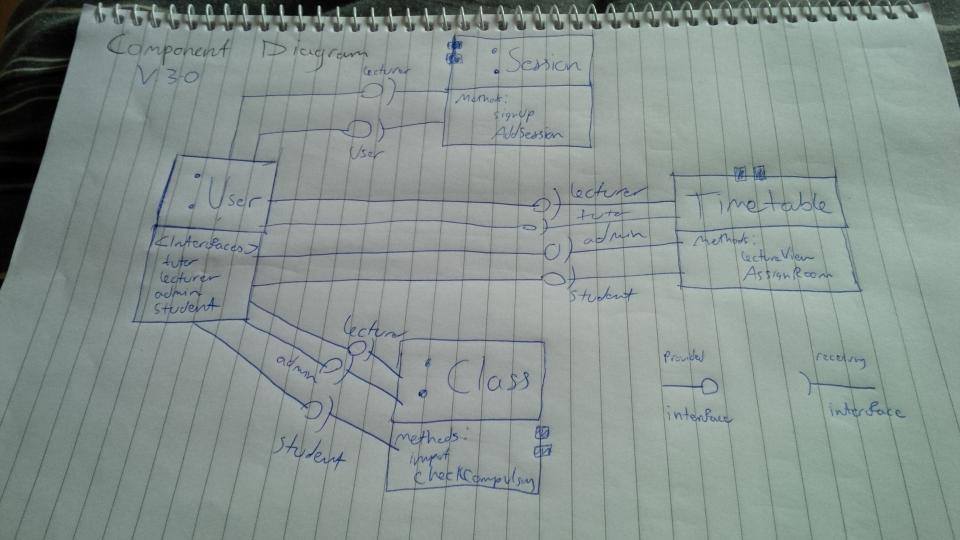 Component Diagram
V 3.0
lecturer
User
: Session
Methods:
signUp
AddSession
: User
<Interfaces>
tutor
lecturer
admin
student
lecturer
tutor
admin
student
Timetable
Methods:
LectureView
AssignRoom
lecturer
admin
student
: Class
Methods:
Provided
interface
receiving
interface